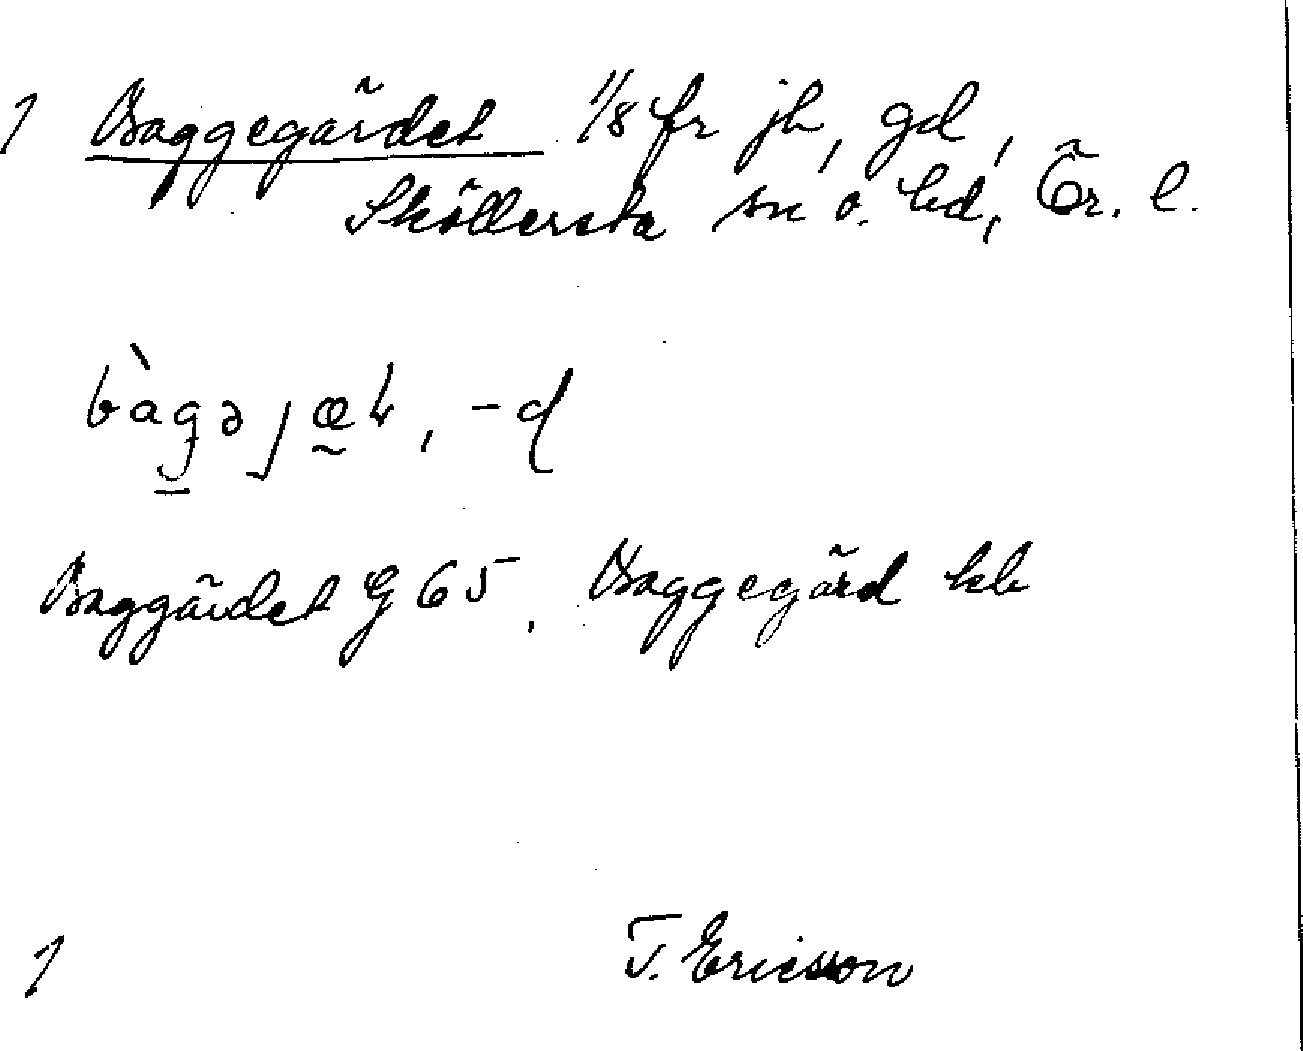 1 Baggegärdet 1/8 fr jb, gd,
Sköllersta sn o. hd, Ör. l.
Baggärdet G 65. Baggegärd kb
1 T. Ericsson